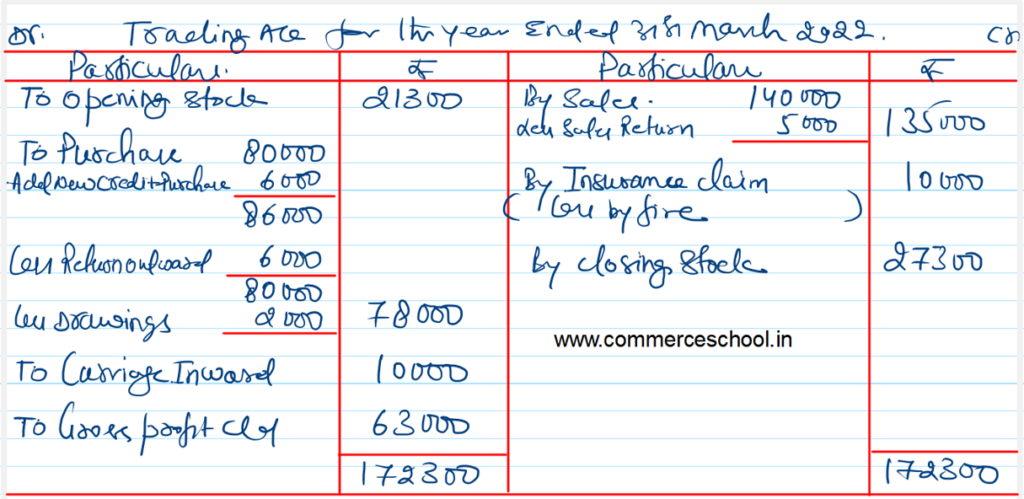 Dr. Trading A/c for the year Ended 31st March 2022. Cr
Particulars. ₹ Particulars ₹
To Opening Stock 21300 By Sales. 140000
Less Sales Return 5000 135000
To Purchase 80000
Add New Credit Purchase 6000 By Insurance claim 10000
86000 (Loss by fire)
Less Return outward 6000 By closing Stock 27300
80000
Less Drawings 2000 78000
www.commerceschool.in
To Carriage Inward 10000
To Gross profit c/d 63000
172300 172300